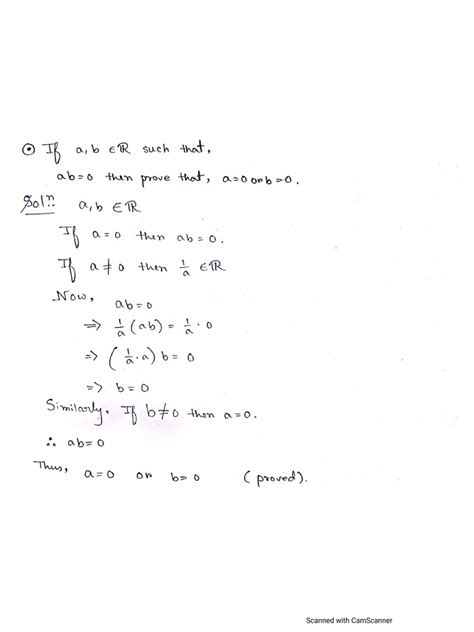 ⊙ If a, b ∈ ℝ such that,
ab=0 then prove that, a=0 or b=0.
Solⁿ: a, b ∈ ℝ
If a=0 then ab=0.
If a≠0 then 1/a ∈ ℝ
Now, ab=0
=> 1/a (ab) = 1/a · 0
=> (1/a · a) b = 0
=> b = 0
Similarly, If b≠0 then a=0.
∴ ab=0
Thus, a=0 or b=0 (proved).
Scanned with CamScanner